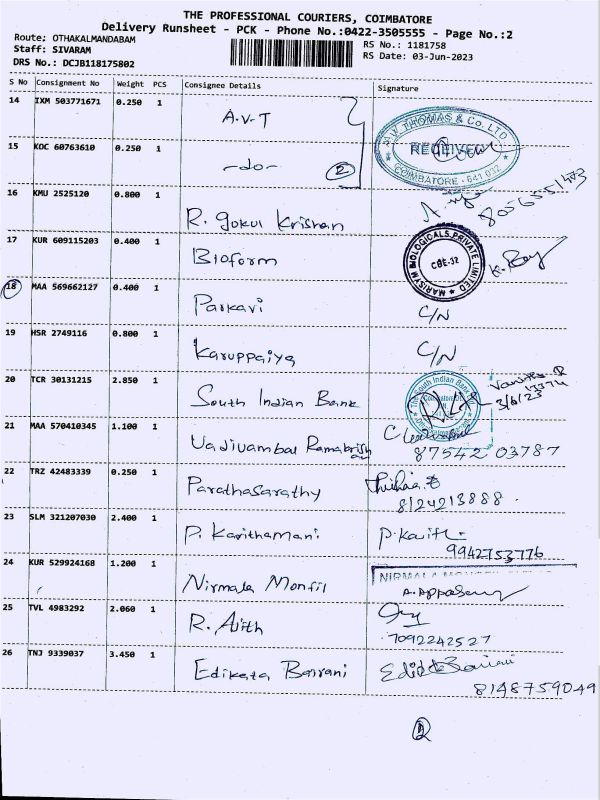 THE PROFESSIONAL COURIERS, COIMBATORE
Delivery Runsheet - PCK - Phone No.:0422-3505555 - Page No.:2
Route; OTHAKALMANDABAM
Staff: SIVARAM
DRS No.: DCJB118175802
RS No.: 1181758
RS Date: 03-Jun-2023
S No Consignment No Weight PCS Consignee Details Signature
14 IXM 503771671 0.250 1 A.V.T
A.V. THOMAS & Co. LTD.
RECEIVED
COIMBATORE - 641 032
15 KOC 60763610 0.250 1 -do- 2
16 KMU 2525120 0.800 1 R. Gokul Krishnan 8056551493
17 KUR 609115203 0.400 1 Bioform
MARISYM BIOLOGICALS PRIVATE LIMITED
CBE-32
K. Roy
18 MAA 569662127 0.400 1 Parkavi C/N
19 HSR 2749116 0.800 1 Karuppaiya C/N
20 TCR 30131215 2.850 1 South Indian Bank
The South Indian Bank
3/6/23
21 MAA 570410345 1.100 1 Vadivambal Ramakrishnan 87542 03787
22 TRZ 42483339 0.250 1 Parathasarathy 8124213888
23 SLM 321207030 2.400 1 P. Kavithamani P. Kavitha 9942753776
24 KUR 529924168 1.200 1 Nirmala Monfil
NIRMALA
25 TVL 4983292 2.060 1 R. Ajith 7092242527
26 TNJ 9339037 3.450 1 Edikata Bairani 8148759049
2